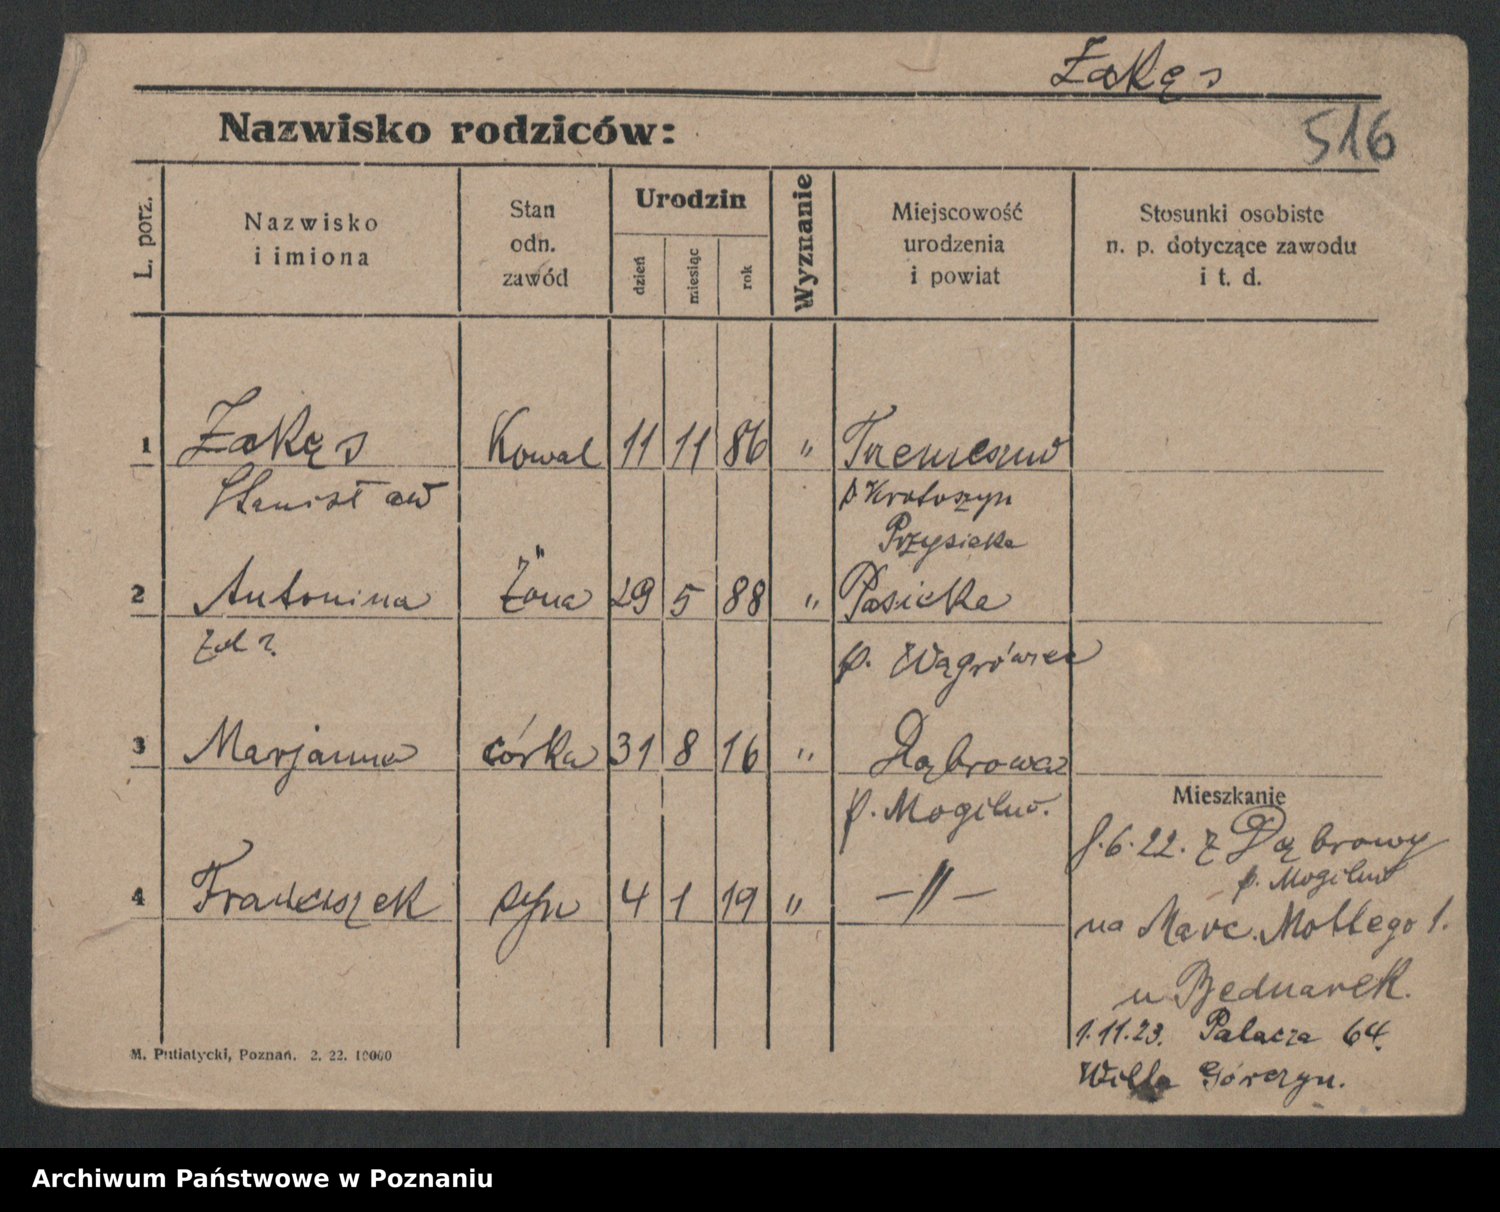 Zakęs
516
Nazwisko rodziców:
L. porz.
Nazwisko
i imiona
Stan
odn.
zawód
Urodzin
dzień
miesiąc
rok
Wyznanie
Miejscowość
urodzenia
i powiat
Stosunki osobiste
n. p. dotyczące zawodu
i t. d.
1 Zakęs Kowal 11 11 86 "
Stanisław p Krotoszyn
Przysieka
2 Antonina Żona 29 5 88 " Pasieka
p. Wągrówiec
3 Marjanna córka 31 8 16 " Dąbrowa
p. Mogilno.
4 Franciszek syn 4 1 19 " —"—
Mieszkanie
8.6.22. z Dąbrowy
p. Mogilno
na Marc. Mottego 1.
u Bednarek.
1.11.23. Palacza 64.
Willa Górczyn.
M. Putiatycki, Poznań. 2. 22. 10000
Archiwum Państwowe w Poznaniu